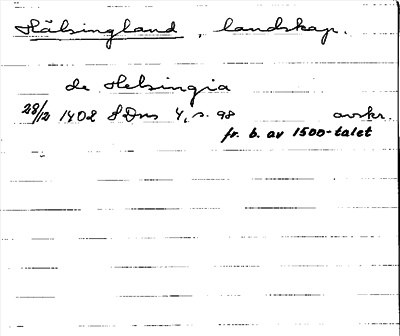 Hälsingland, landskap.
de Helsingia
28/12 1402 SDns 4, s. 98 avskr.
fr. b. av 1500-talet